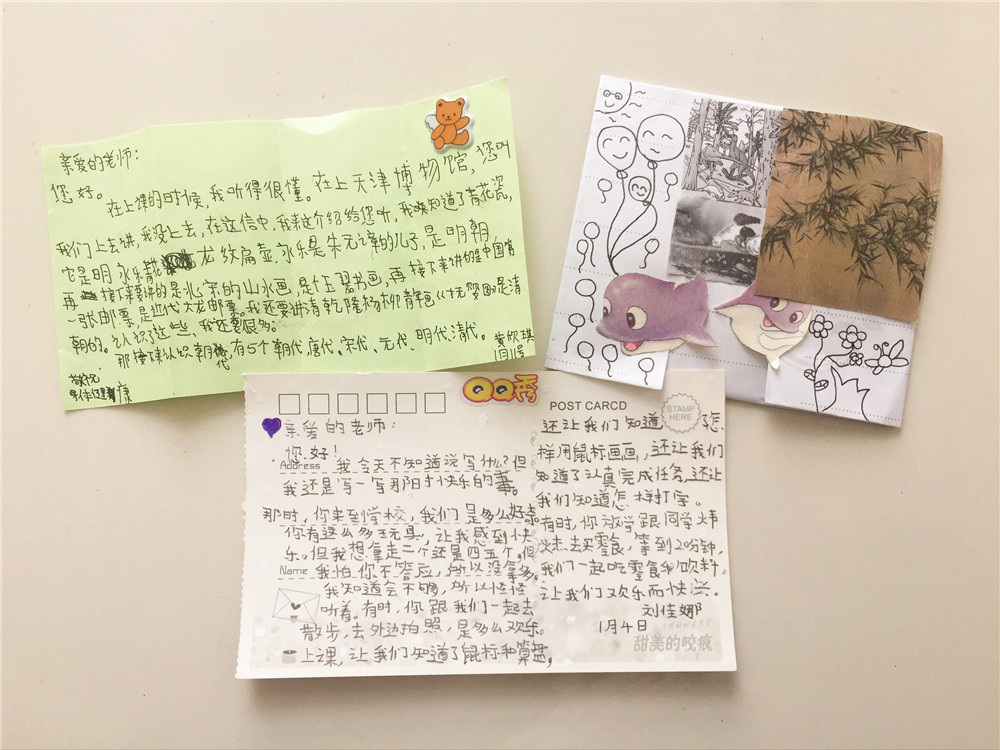 亲爱的老师：
您好。在上课的时候，我听得很懂。在上天津博物馆，您叫
我们上去讲，我没上去，在这信中，我来这介绍给您听，我知道了青花瓷，
它是明永乐青花龙纹扁壶，永乐是朱元璋的儿子，是明朝，
再接下来要讲的是北宋的山水画，是书画，再接下来讲的是中国第
一张邮票，是近代大龙邮票。我还要讲清乾隆杨柳青画是清
朝的。认识了这些，我还很多。
那接下来认识朝代，有5个朝代，唐代、宋代、元代、明代、清代。
敬祝
身体健康
黄欣琪
QQ秀
POST CARCD
STAMP
HERE
亲爱的老师：
你好！
Address 我今天不知道说写什么？但
我还是写一写那日子快乐的事。
那时，你来到学校，我们是多么好奇
你有这么多玩具，让我感到快
乐。但我想拿走二个还是四五个，但
Name 我怕你不答应，所以没拿多。
我知道会不够，所以怪怪
听着。有时，你跟我们一起去
散步，去外边拍照，是多么欢乐。
上课，让我们知道了鼠标和算盘，
还让我们知道了怎
样用鼠标画画，还让我们
知道了认真完成任务，还让
我们知道怎样打字。
有时，你放学跟同学炜
炎去买零食，等到20分钟，
我们一起吃零食我饮料，
让我们欢乐而快兴。
刘佳娜
1月4日
甜美的咬痕